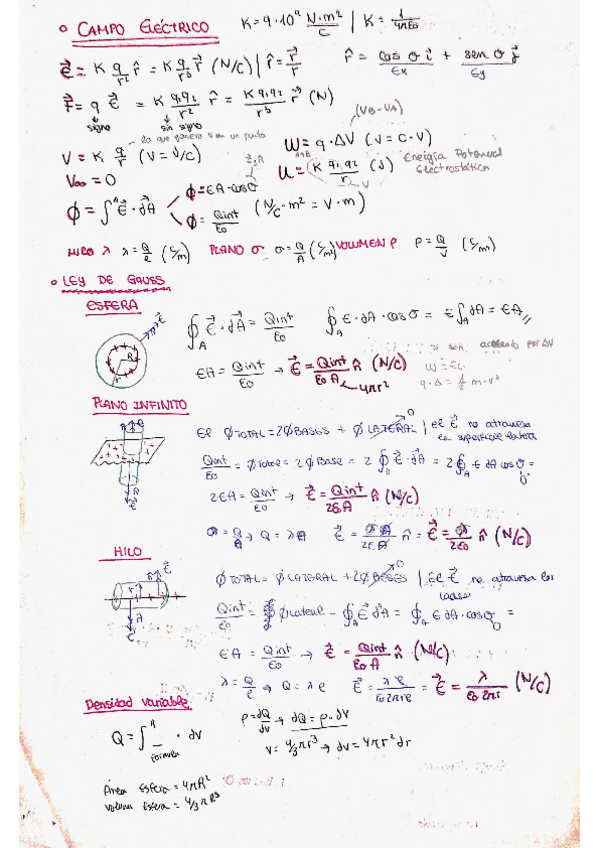 ○ CAMPO ELÉCTRICO K = 9·10⁹ N·m²/C | K = 1/4πε₀
E⃗ = K q/r² r̂ = K q/r³ r⃗ (N/C) | r̂ = r⃗/r r̂ = cos σ i⃗ + sen σ j⃗
Ex Ey
F⃗ = q E⃗ = K q₁q₂/r² r̂ = K q₁q₂/r³ r⃗ (N)
signo sin signo (VB-VA)
lo que genera V en un punto
V = K q/r (V = J/C) W = q·ΔV (J = C·V)
A→B
V∞ = 0 U = K q₁q₂/r (J) Energía Potencial Electrostática
V
ϕ = ∫ᴬ E⃗·dA⃗ ϕ = EA·cosσ
ϕ = Qint/ε₀ (N/C·m² = V·m)
HILO λ λ = Q/l (C/m) PLANO σ σ = Q/A (C/m²) VOLUMEN ρ ρ = Q/V (C/m³)
○ LEY DE GAUSS
ESFERA
E⃗
R
r
∮A E⃗·dA⃗ = Qint/ε₀ ∮A E·dA·cosσ = E∮A dA = EA
EA = Qint/ε₀ → E⃗ = Qint/ε₀A n̂ (N/C)
4πr²
si son por ΔV
q·Δ = 1/2 m·v²
PLANO INFINITO
E⃗
El ϕTOTAL = 2ϕBASES + ϕLATERAL 0 | el E⃗ no atraviesa la superficie lateral
Qint/ε₀ = ϕTotal = 2ϕBase = 2∮E⃗·dA⃗ = 2∮A E dA cosσ =
2EA = Qint/ε₀ → E⃗ = Qint/2ε₀A n̂ (N/C)
σ = Q/A → Q = λA E⃗ = σA/2εA n̂ = E⃗ = σ/2ε₀ n̂ (N/C)
HILO
E⃗
r
ϕTOTAL = ϕLATERAL + 2ϕBASES 0 | El E⃗ no atraviesa las bases
Qint/ε₀ = ϕLateral = ∮A E⃗ dA⃗ = ∮A E dA·cosσ =
EA = Qint/ε₀ → E⃗ = Qint/ε₀A n̂ (N/C)
λ = Q/l → Q = λl E⃗ = λl/ε₀2πrl = E⃗ = λ/ε₀2πr (N/C)
Densidad variable
ρ = dQ/dV → dQ = ρ·dV
Q = ∫ᴬ _ · dV
V = 4/3πr³ → dV = 4πr²dr
Área Esfera = 4πR²
Volumen Esfera = 4/3πR³